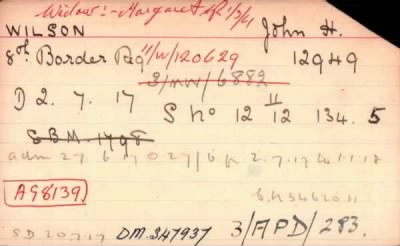 Widow:- Margaret 1/3/61
WILSON John H.
8th Border Reg 11/W/120629 12949
3/MW/6882
D 2. 7. 17 S No 12 12 134. 5
SBM 1798
adm 27 6 2. 7. 17 to 1. 1. 18
A98139
SD 20.7.17 DM. 347937 3/APD/283.